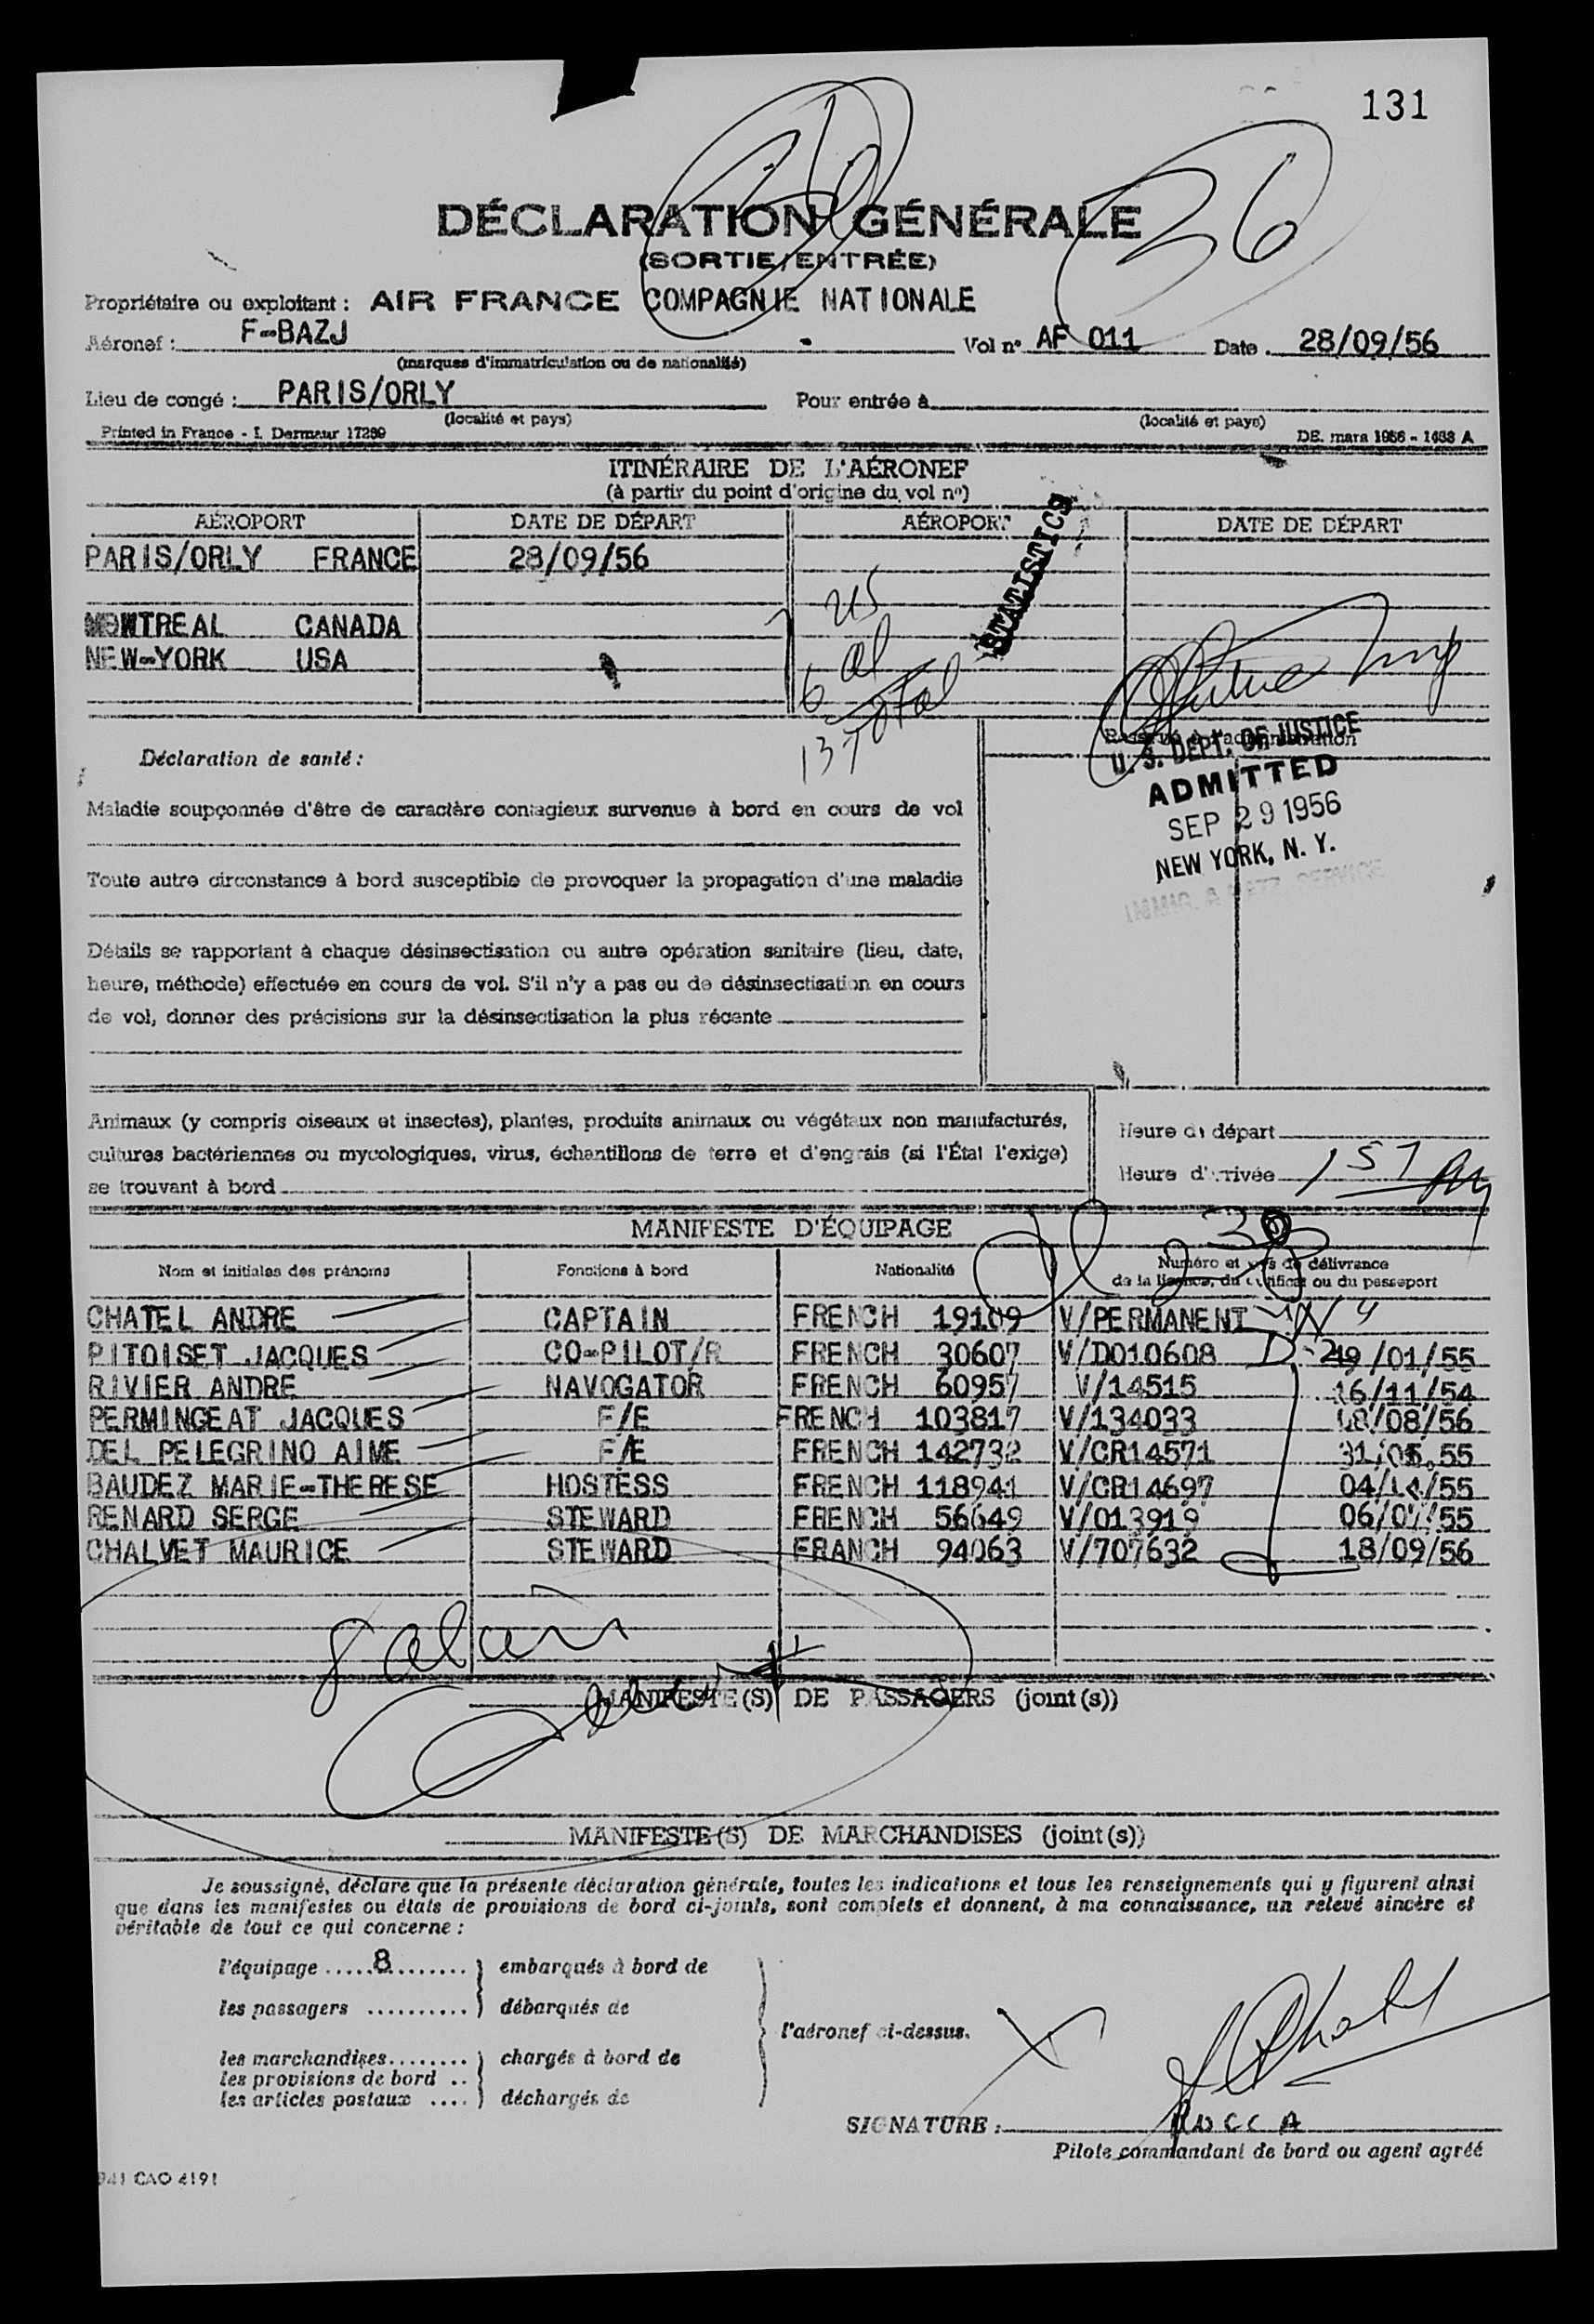 131
36
DÉCLARATION GÉNÉRALE
(SORTIE/ENTRÉE)
Propriétaire ou exploitant : AIR FRANCE COMPAGNIE NATIONALE
Aéronef : F-BAZJ Vol n° AF 011 Date 28/09/56
(marques d'immatriculation ou de nationalité)
Lieu de congé : PARIS/ORLY Pour entrée à
(localité et pays) (localité et pays)
Printed in France - I. Dermaur 17289 DE. mars 1956 - 1488 A
ITINÉRAIRE DE L'AÉRONEF
(à partir du point d'origine du vol n°)
AÉROPORT DATE DE DÉPART AÉROPORT DATE DE DÉPART
PARIS/ORLY FRANCE 28/09/56
STATISTICS
7 US
MONTREAL CANADA
6 al
NEW-YORK USA
13 Total
Déclaration de santé :
U. S. DEPT. OF JUSTICE
ADMITTED
SEP 29 1956
NEW YORK, N. Y.
Maladie soupçonnée d'être de caractère contagieux survenue à bord en cours de vol
Toute autre circonstance à bord susceptible de provoquer la propagation d'une maladie
Détails se rapportant à chaque désinsectisation ou autre opération sanitaire (lieu, date,
heure, méthode) effectuée en cours de vol. S'il n'y a pas eu de désinsectisation en cours
de vol, donner des précisions sur la désinsectisation la plus récente
Animaux (y compris oiseaux et insectes), plantes, produits animaux ou végétaux non manufacturés,
cultures bactériennes ou mycologiques, virus, échantillons de terre et d'engrais (si l'État l'exige)
se trouvant à bord
Heure de départ
Heure d'arrivée
MANIFESTE D'ÉQUIPAGE
Nom et initiales des prénoms Fonctions à bord Nationalité Numéro et visa de délivrance
de la licence, du certificat ou du passeport
CHATEL ANDRE CAPTAIN FRENCH 19109 V/PERMANENT
PITOISET JACQUES CO-PILOT/R FRENCH 30607 V/D010608 /01/55
RIVIER ANDRE NAVOGATOR FRENCH 60957 V/14515 16/11/54
PERMINGEAT JACQUES F/E FRENCH 103817 V/134033 /08/56
DEL PELEGRINO AIME F/E FRENCH 142732 V/CR14571 31/05.55
BAUDEZ MARIE-THERESE HOSTESS FRENCH 118941 V/CR14697 04/ /55
RENARD SERGE STEWARD FRENCH 56649 V/013919 06/ /55
CHALVET MAURICE STEWARD FRANCH 94063 V/707632 18/09/56
8 alien
MANIFESTE(S) DE PASSAGERS (joint(s))
MANIFESTE(S) DE MARCHANDISES (joint(s))
Je soussigné, déclare que la présente déclaration générale, toutes les indications et tous les renseignements qui y figurent ainsi
que dans les manifestes ou états de provisions de bord ci-joints, sont complets et donnent, à ma connaissance, un relevé sincère et
véritable de tout ce qui concerne :
l'équipage .....8........ embarqués à bord de
les passagers .......... débarqués de
l'aéronef ci-dessus.
les marchandises........ chargés à bord de
les provisions de bord ..
les articles postaux .... déchargés de
SIGNATURE : ROCCA
Pilote commandant de bord ou agent agréé
941 CAO 4191